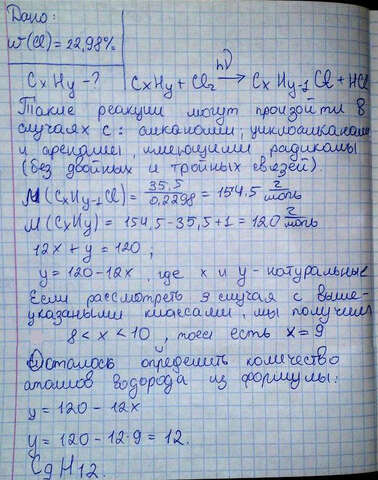 Дано:
w(Cl) = 22,98%
CxHy - ?
CxHy + Cl2 →hν CxHy-1Cl + HCl
Такие реакции могут произойти в
случаях с: алканами, циклоалканами
и аренами, имеющими радикалы
(без двойных и тройных связей).
M(CxHy-1Cl) = 35,5/0,2298 = 154,5 г/моль
M(CxHy) = 154,5 - 35,5 + 1 = 120 г/моль
12x + y = 120 ;
y = 120 - 12x , где x и y - натуральные
Если рассмотреть 3 случая с выше-
указаными классами, мы получим
8 < x < 10 , тоесть есть x = 9
Осталось определить количество
атомов водорода из формулы:
y = 120 - 12x
y = 120 - 12·9 = 12.
C9H12.